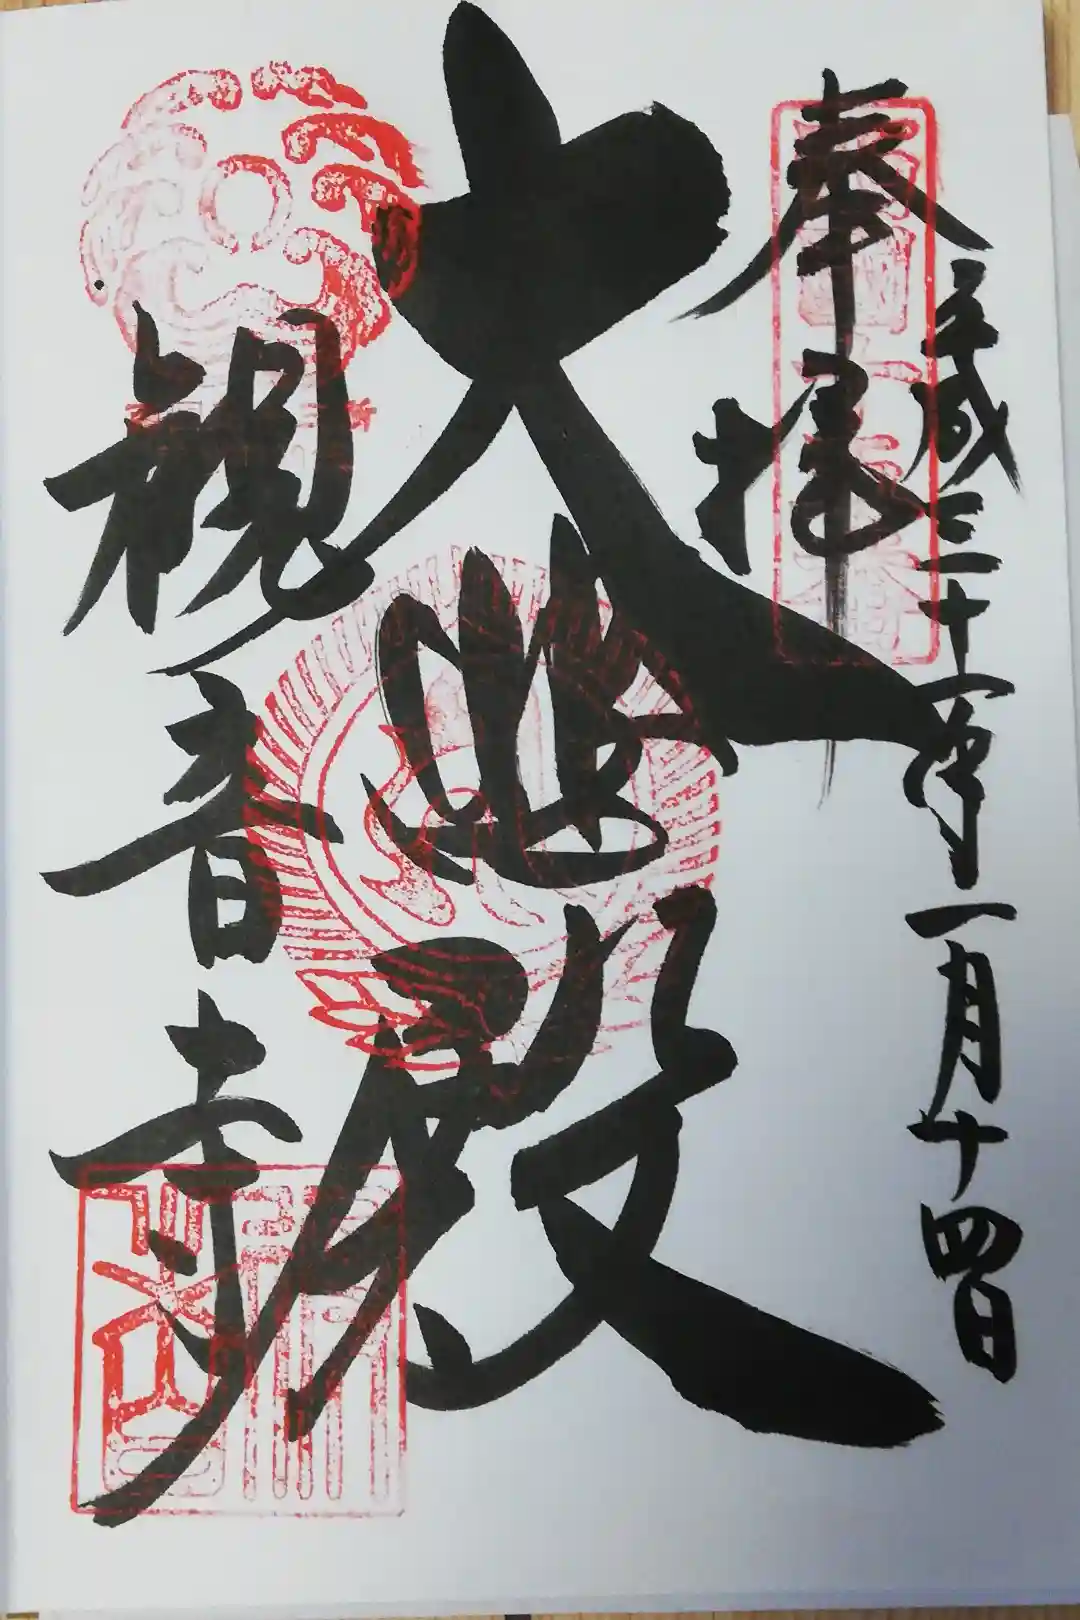 平成三十一年一月十四日
奉拝
大悲殿
観音寺